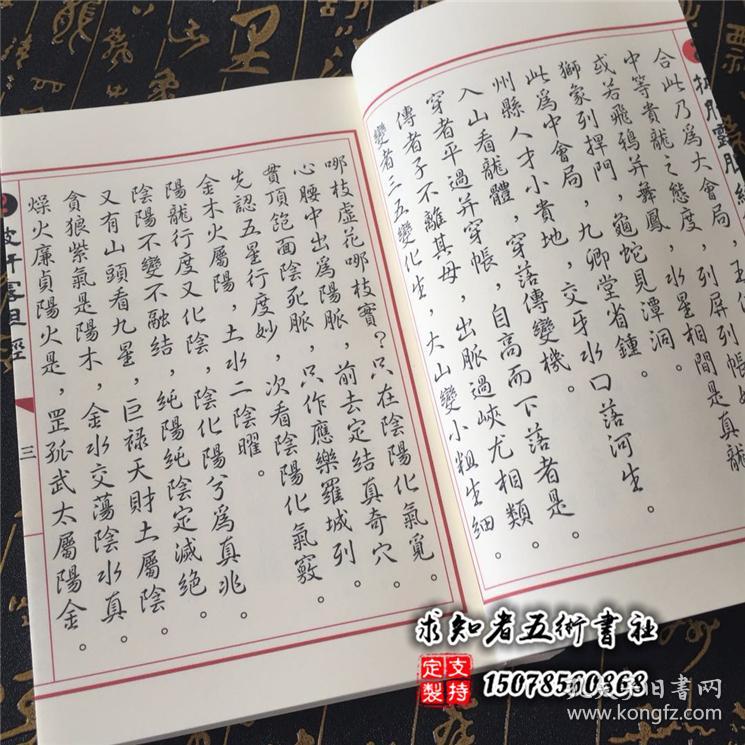 合此乃為大會局，
列屏列帳
中等貴龍之態度，水星相間是真龍
或若飛鴉并舞鳳，龜蛇見潭洞。
獅象列捍門，九卿堂省鍾。
此為中會局，交牙水口落河生。
州縣人才小貴地，穿落傳變機。
入山看龍體，自高而下落者是。
穿者平過并穿帳，出脈過峽尤相類。
傳者子不離其母，大山變小粗生細。
變者二五變化生，
哪枝虛花哪枝實？只在陰陽化氣覓。
心腰中出為陽脈，前去定結真奇穴。
貫頂飽面陰死脈，只作應樂羅城列。
先認五星行度妙，次看陰陽化氣竅。
金木火屬陽，土水二陰曜。
陽龍行度又化陰，陰化陽兮為真兆。
陰陽不變不融結，純陽純陰定滅絕。
又有山頭看九星，巨祿天財土屬陰。
貪狼紫氣是陽木，金水交蕩陰水真。
燥火廉貞陽火是，罡孤武太屬陽金。
三
求知者五術書社
定製
支持
15078510868
www.kongfz.com